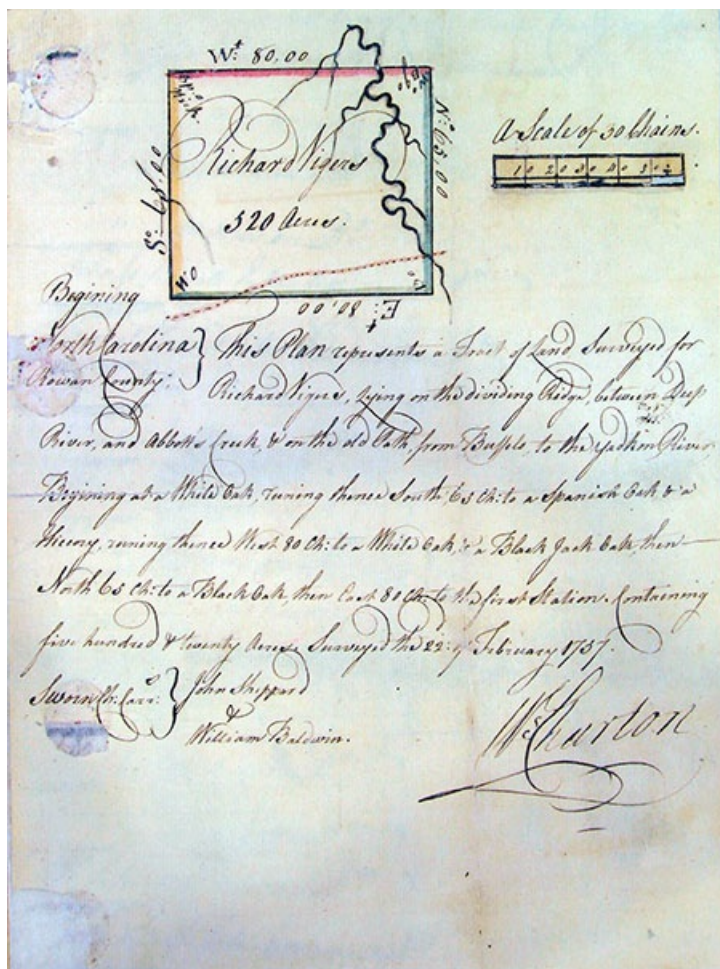 Wt. 80,00
Richard Vigers
520 Acres.
So. 65,00
No. 65,00
W:O
Et. 80,00
A Scale of 50 Chains.
10 20 30 40 50
Begining
North Carolina } This Plan represents a Tract of Land Surveyed for
Rowan County: Richard Vigers, Lying on the dividing Ridge, between Deep
River, and Abbott's Creek, & on the old Path, from Buffelo, to the Yadkin River
Begining at a White Oak, runing thence South, 65 Ch: to a Spanish Oak & a
Hiccory, runing thence West 80 Ch: to a White Oak, & a Black Jack Oak, then
North 65 Ch: to a Black Oak, then East 80 Ch: to the first Station. Containing
five hundred & twenty Acres. Surveyed the 22: of February 1757.
Sworn Ch: Carr: } John Sheppard
&
William Baldwin.
Wm Churton